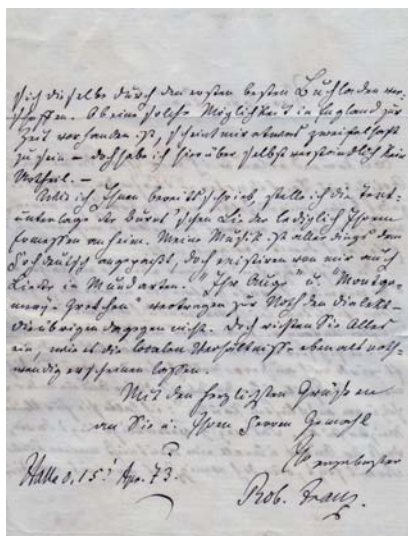 sich dieselbe durch den ersten besten Buchladen ver-
schaffen. Ob eine solche Möglichkeit in England zur
Zeit vorhanden ist, scheint mir etwas zweifelhaft
zu sein – doch habe ich hierüber selbstverständlich kein
Urtheil. –
Wie ich Ihnen bereits schrieb, stelle ich die Text-
unterlage der Burns'schen Lieder lediglich Ihrem
Ermessen anheim. Meine Musik ist allerdings dem
Hochdeutsch angepaßt, doch existiren von mir auch
Lieder in Mundarten. "Ihr Auge" u. "Montgo-
mery-Gretchen" vertragen zur Noth den Dialekt –
die übrigen dagegen nicht. Doch richten Sie Alles
ein, wie es die localen Verhältnisse eben als noth-
wendig erscheinen lassen.
Mit den herzlichsten Grüßen
an Sie u. Ihren Herrn Gemahl
Ihr ergebenster
Halle d. 15t Apr. 73.
Rob. Franz.